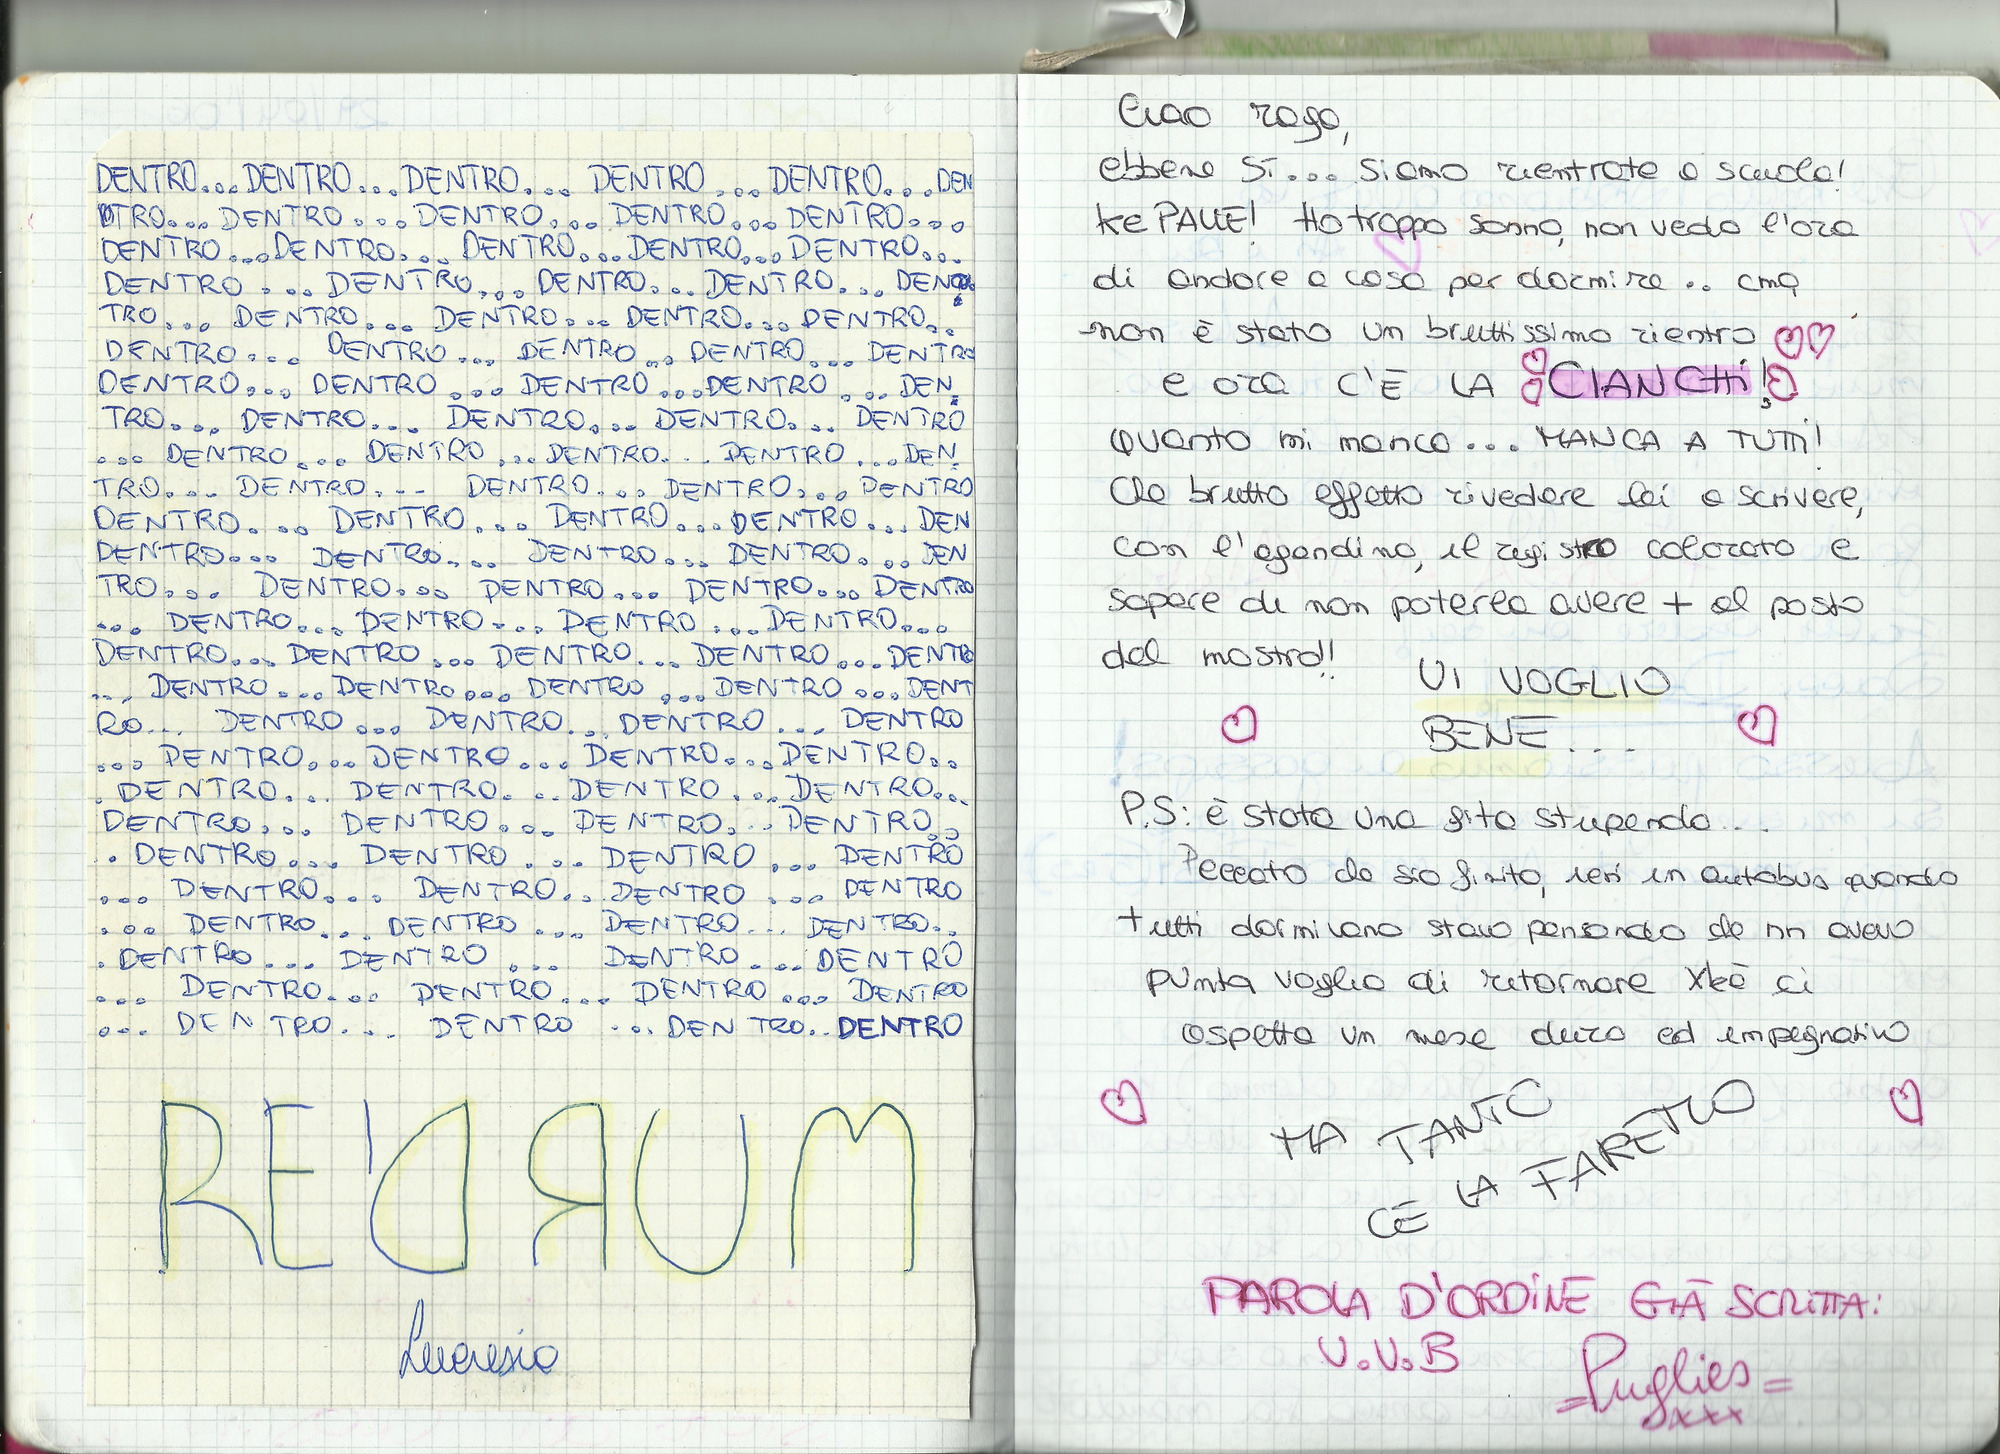 DENTRO...DENTRO...DENTRO... DENTRO ...DENTRO...DEN
TRO... DENTRO... DENTRO... DENTRO... DENTRO...
DENTRO...DENTRO... DENTRO...DENTRO...DENTRO...
DENTRO ... DENTRO... DENTRO... DENTRO... DEN
TRO... DENTRO... DENTRO... DENTRO... DENTRO..
DENTRO... DENTRO... DENTRO... DENTRO... DENTRO
DENTRO... DENTRO ... DENTRO...DENTRO ... DEN
TRO... DENTRO... DENTRO... DENTRO... DENTRO
... DENTRO... DENTRO ...DENTRO... DENTRO ...DEN
TRO... DENTRO... DENTRO... DENTRO... DENTRO
DENTRO... DENTRO... DENTRO...DENTRO... DEN
DENTRO... DENTRO... DENTRO... DENTRO... DEN
TRO... DENTRO... DENTRO... DENTRO... DENTRO
... DENTRO... DENTRO... DENTRO ...DENTRO...
DENTRO... DENTRO ... DENTRO... DENTRO ...DENTRO
... DENTRO ...DENTRO... DENTRO ...DENTRO ...DENT
RO... DENTRO ... DENTRO... DENTRO ... DENTRO
... DENTRO...DENTRO... DENTRO...DENTRO..
. DENTRO... DENTRO... DENTRO ...DENTRO...
DENTRO... DENTRO... DENTRO...DENTRO..
. DENTRO... DENTRO ... DENTRO ... DENTRO
... DENTRO... DENTRO...DENTRO ... DENTRO
... DENTRO... DENTRO ... DENTRO... DENTRO..
. DENTRO... DENTRO ... DENTRO ... DENTRO
... DENTRO... DENTRO... DENTRO ... DENTRO
... DENTRO... DENTRO ... DENTRO.. DENTRO
REDRUM
Lucrezia
Ciao raga,
ebbene sì... siamo rientrate a scuola!
Ke PALLE! Ho troppo sonno, non vedo l'ora
di andare a casa per dormire.. cmq
non è stato un bruttissimo rientro
e ora c'è LA CIANCHI!
Quanto mi manca... MANCA A TUTTI!
Che brutto effetto rivedere lei a scrivere,
con l'agendina, il registro colorato e
sapere di non poterla avere + al posto
del mostro!!
VI VOGLIO
BENE...
P.S: è stata una gita stupenda...
Peccato che sia finita, ieri in autobus quando
tutti dormivano stavo pensando che nn avevo
punta voglia di ritornare xkè ci
aspetta un mese duro ed impegnativo
MA TANTO
CE LA FARETLO
PAROLA D'ORDINE GIÀ SCRITTA:
V.V.B
=Puglies=
xxx